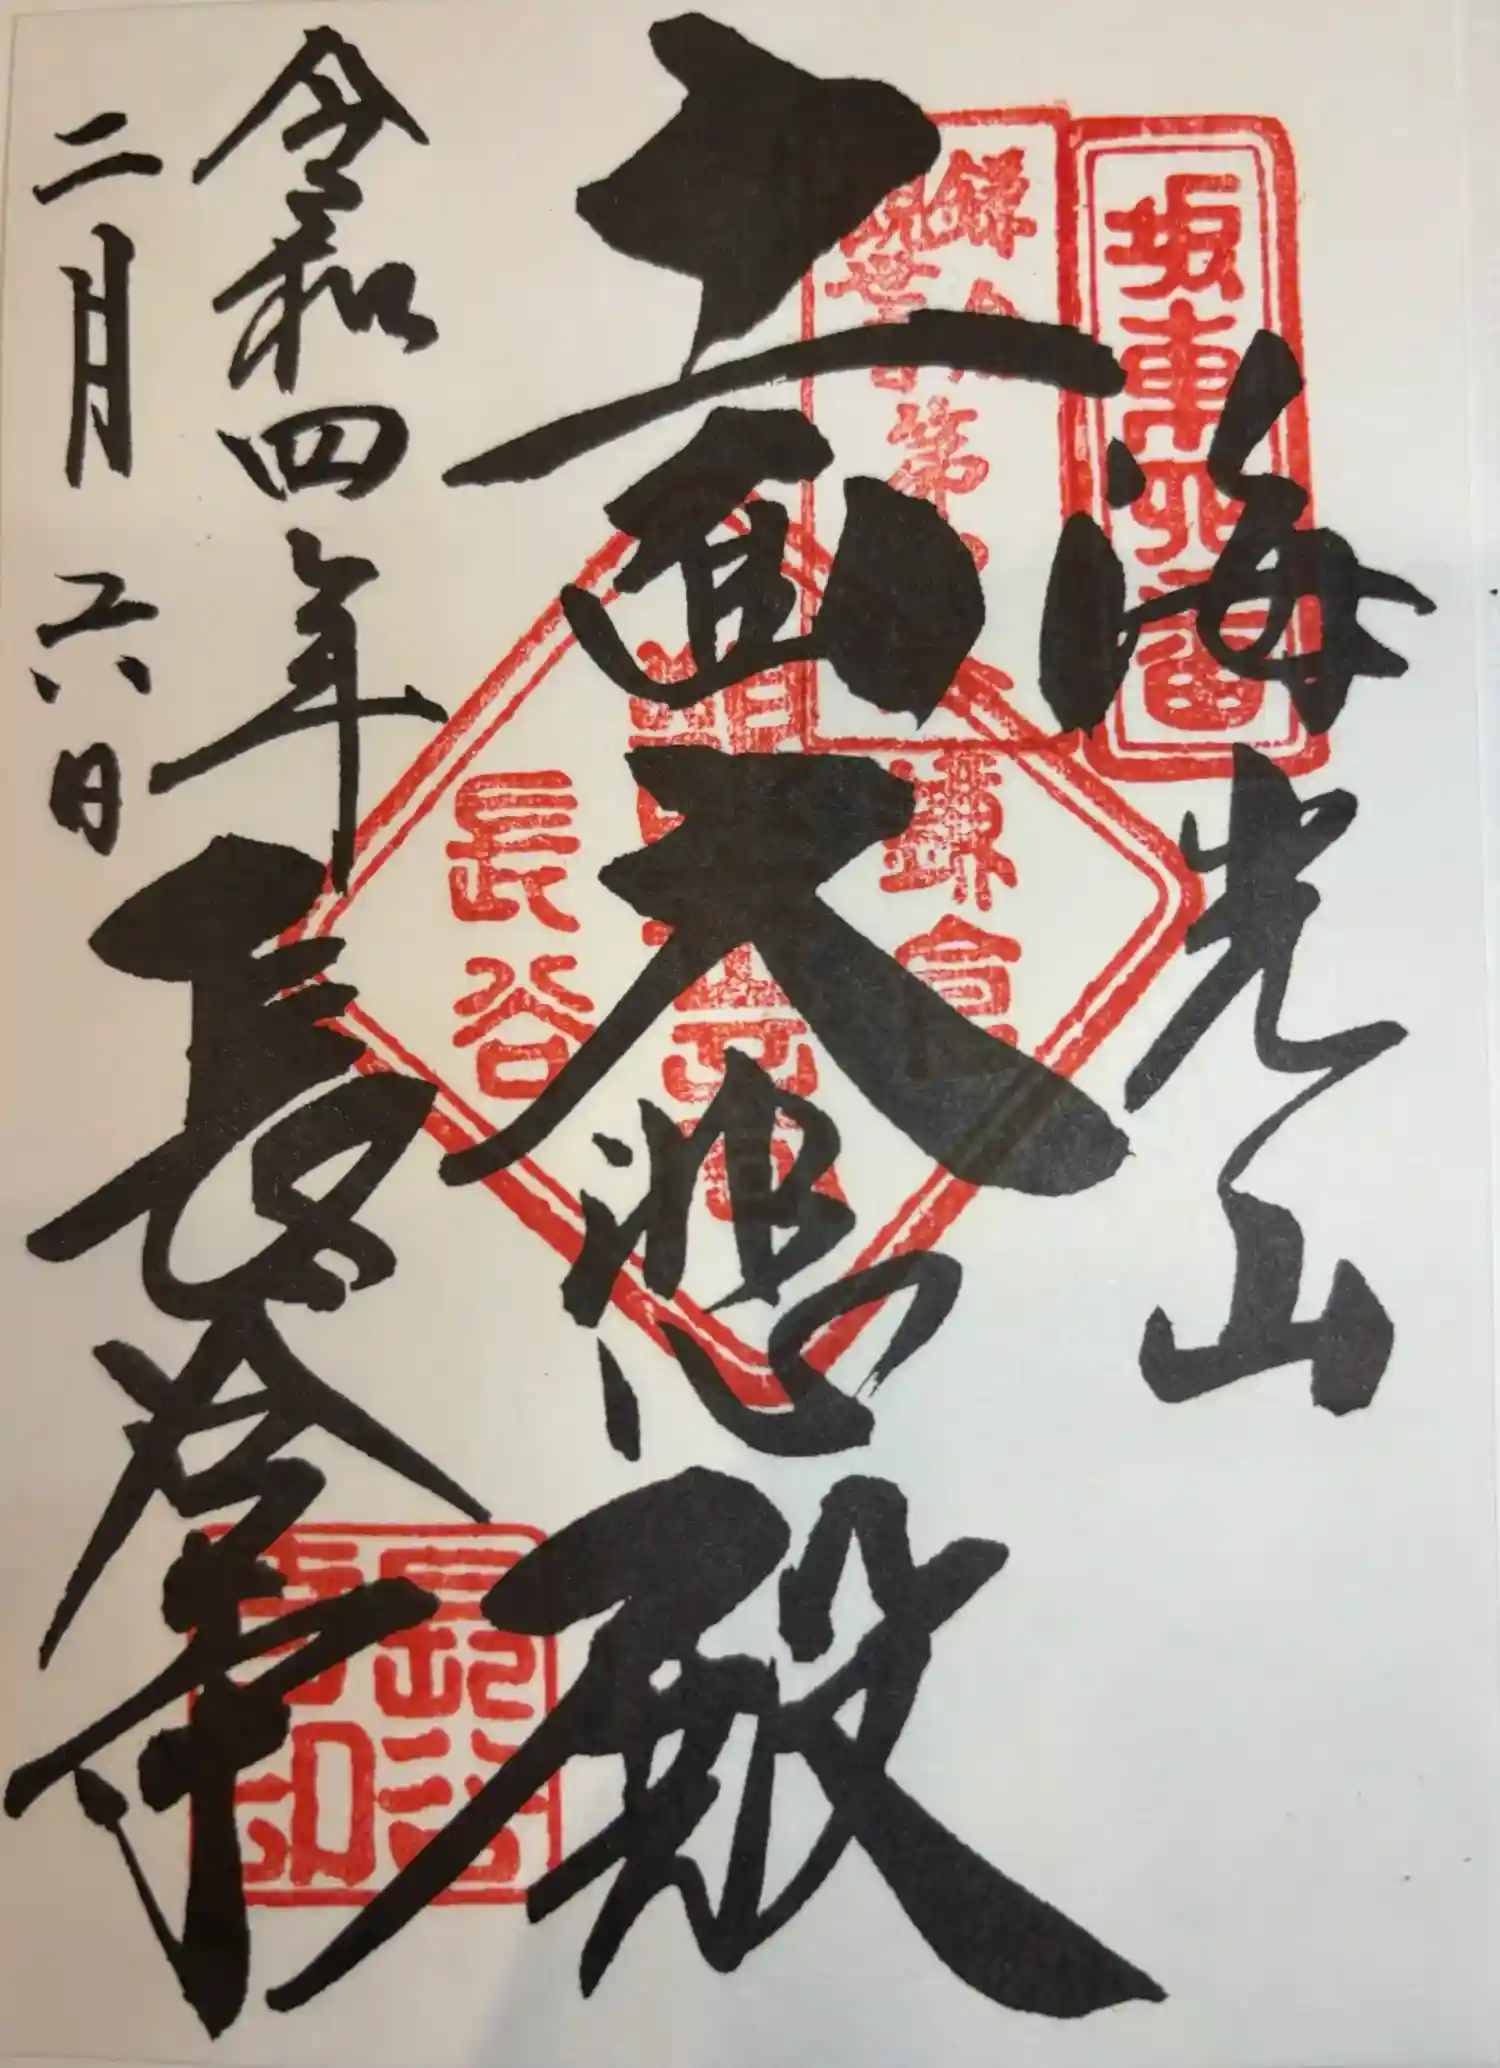 坂東四番
海光山
十一面大悲殿
鎌倉
長谷
令和四年
二月六日
長谷寺